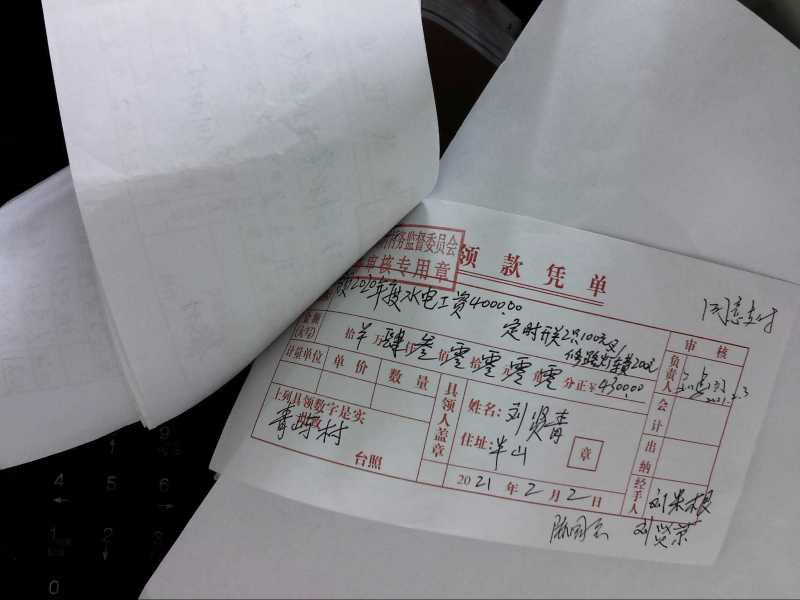 务监督委员会
审核专用章
领款凭单
同意支付
领2020年度水电工资4000.00
定时开关2只100元,
修路灯锁200元
金额
(大写)
拾 万肆仟叁佰零拾零元零角零分正¥4300.00
计量单位 单价 数量
上列具领数字是实
此致
青塘村
台照
具领人盖章
姓名:刘贤青
住址:半山
章
2021年2月2日
审核
负责人
2021.2.3
会计
出纳
经手人
刘贤荣